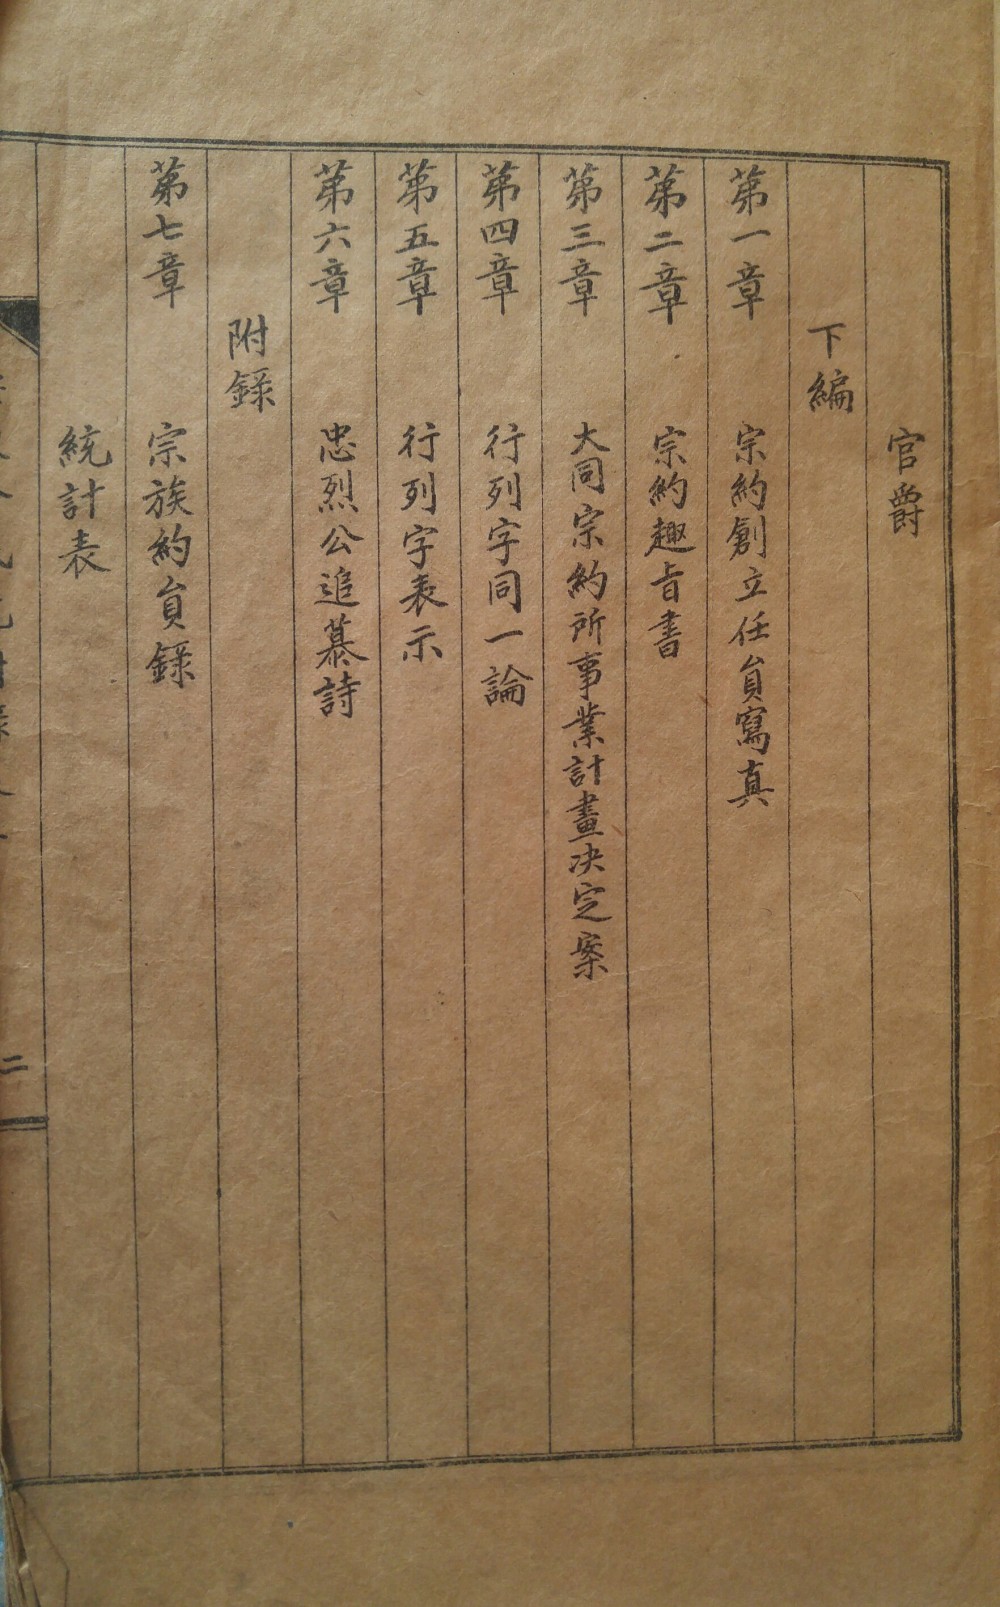 官爵
下編
第一章 宗約創立任員寫真
第二章 宗約趣旨書
第三章 大同宗約所事業計畫决定案
第四章 行列字同一論
第五章 行列字表示
第六章 忠烈公追慕詩
附錄
第七章 宗族約員錄
統計表
二